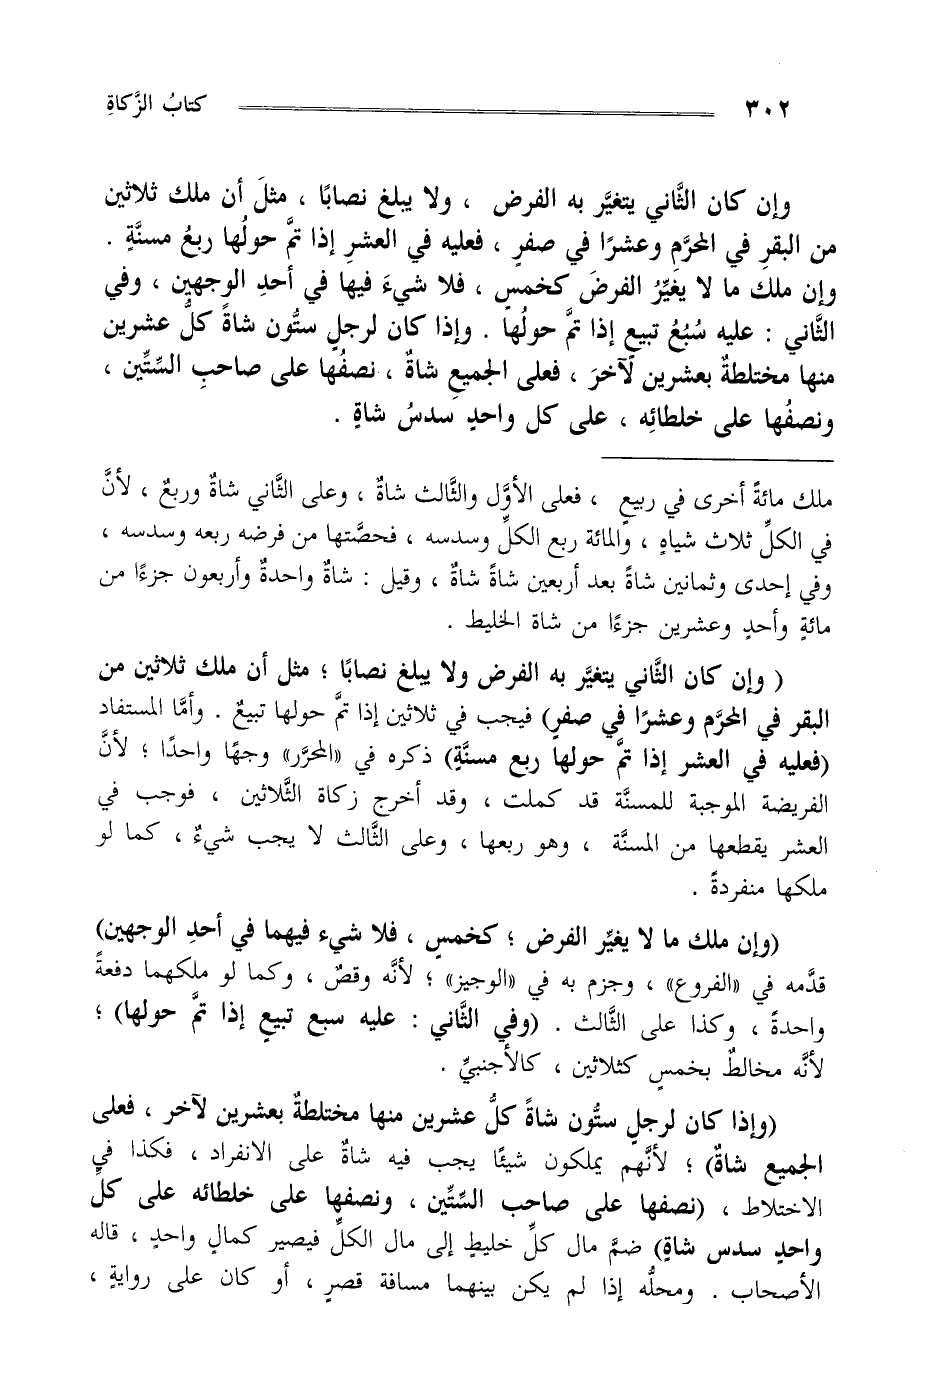 ٣٠٢ كتابُ الزَّكاةِ
وإن كان الثَّاني يتغيَّر به الفرض ، ولا يبلغ نصابًا ، مثلَ أن ملك ثلاثين
من البقرِ في المحرَّم وعشرًا في صفرٍ ، فعليه في العشرِ إذا تمَّ حولُها ربعُ مسنَّةٍ .
وإن ملك ما لا يغيِّرُ الفرضَ كخمسٍ ، فلا شيءَ فيها في أحدِ الوجهين ، وفي
الثَّاني : عليه سُبُعُ تبيعٍ إذا تمَّ حولُها . وإذا كان لرجلٍ ستُّون شاةً كلُّ عشرين
منها مختلطةٌ بعشرين لآخرَ ، فعلى الجميعِ شاةٌ ، نصفُها على صاحبِ السِّتِّين ،
ونصفُها على خلطائِه ، على كل واحدٍ سدسُ شاةٍ .
ملك مائةً أخرى في ربيعٍ ، فعلى الأوَّل والثَّالث شاةٌ ، وعلى الثَّاني شاةٌ وربعٌ ، لأنَّ
في الكلِّ ثلاث شياهٍ ، والمائة ربع الكلِّ وسدسه ، فحصَّتها من فرضه ربعه وسدسه ،
وفي إحدى وثمانين شاةً بعد أربعين شاةً شاةٌ ، وقيل : شاةٌ واحدةٌ وأربعون جزءًا من
مائةٍ وأحدٍ وعشرين جزءًا من شاة الخليط .
( وإن كان الثَّاني يتغيَّر به الفرض ولا يبلغ نصابًا ؛ مثل أن ملك ثلاثين من
البقر في المحرَّم وعشرًا في صفرٍ) فيجب في ثلاثين إذا تمَّ حولها تبيعٌ . وأمَّا المستفاد
(فعليه في العشر إذا تمَّ حولها ربع مسنَّةٍ) ذكره في «المحرَّر» وجهًا واحدًا ؛ لأنَّ
الفريضة الموجبة للمسنَّة قد كملت ، وقد أخرج زكاة الثَّلاثين ، فوجب في
العشر يقطعها من المسنَّة ، وهو ربعها ، وعلى الثَّالث لا يجب شيءٌ ، كما لو
ملكها منفردةً .
(وإن ملك ما لا يغيِّر الفرض ؛ كخمسٍ ، فلا شيء فيهما في أحدِ الوجهين)
قدَّمه في «الفروع» ، وجزم به في «الوجيز» ؛ لأنَّه وقصٌ ، وكما لو ملكهما دفعةً
واحدةً ، وكذا على الثَّالث . (وفي الثَّاني : عليه سبع تبيعٍ إذا تمَّ حولها) ؛
لأنَّه مخالطٌ بخمسٍ كثلاثين ، كالأجنبيِّ .
(وإذا كان لرجلٍ ستُّون شاةً كلُّ عشرين منها مختلطةٌ بعشرين لآخر ، فعلى
الجميع شاةٌ) ؛ لأنَّهم يملكون شيئًا يجب فيه شاةٌ على الانفراد ، فكذا في
الاختلاط ، (نصفها على صاحب السِّتِّين ، ونصفها على خلطائه على كلِّ
واحدٍ سدس شاةٍ) ضمَّ مال كلِّ خليطٍ إلى مال الكلِّ فيصير كمالٍ واحدٍ ، قاله
الأصحاب . ومحلُّه إذا لم يكن بينهما مسافة قصرٍ ، أو كان على روايةٍ ،